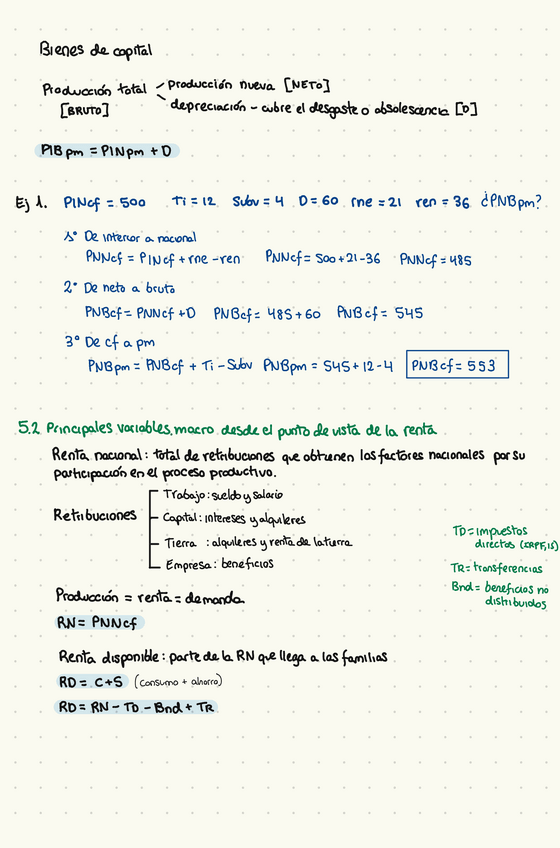 Bienes de capital
Producción total
[BRUTO]
Producción nueva [NETO]
depreciación - cubre el desgaste o absolescencia [D]
PIBpm = PINpm + D
Ej 1. PINcf = 500 Ti = 12 Subv = 4 D = 60 rne = 21 ren = 36 ¿PNBpm?
1º De interior a nacional
PNNcf = PINcf + rne - ren PNNcf = 500 + 21 - 36 PNNcf = 485
2º De neto a bruto
PNBcf = PNNcf + D PNBcf = 485 + 60 PNBcf = 545
3º De cf a pm
PNBpm = PNBcf + Ti - Subv PNBpm = 545 + 12 - 4 PNBcf = 553
5.2 Principales variables macro desde el punto de vista de la renta
Renta nacional: total de retribuciones que obtienen los factores nacionales por su
participación en el proceso productivo.
Retribuciones
Trabajo: sueldo y salario
Capital: intereses y alquileres
Tierra : alquileres y renta de la tierra
Empresa: beneficios
TD = impuestos
directos (IRPF, IS)
TR = transferencias
Bnd = beneficios no
distribuidos
Producción = renta = demanda
RN = PNNcf
Renta disponible: parte de la RN que llega a las familias
RD = C + S (consumo + ahorro)
RD = RN - TD - Bnd + TR